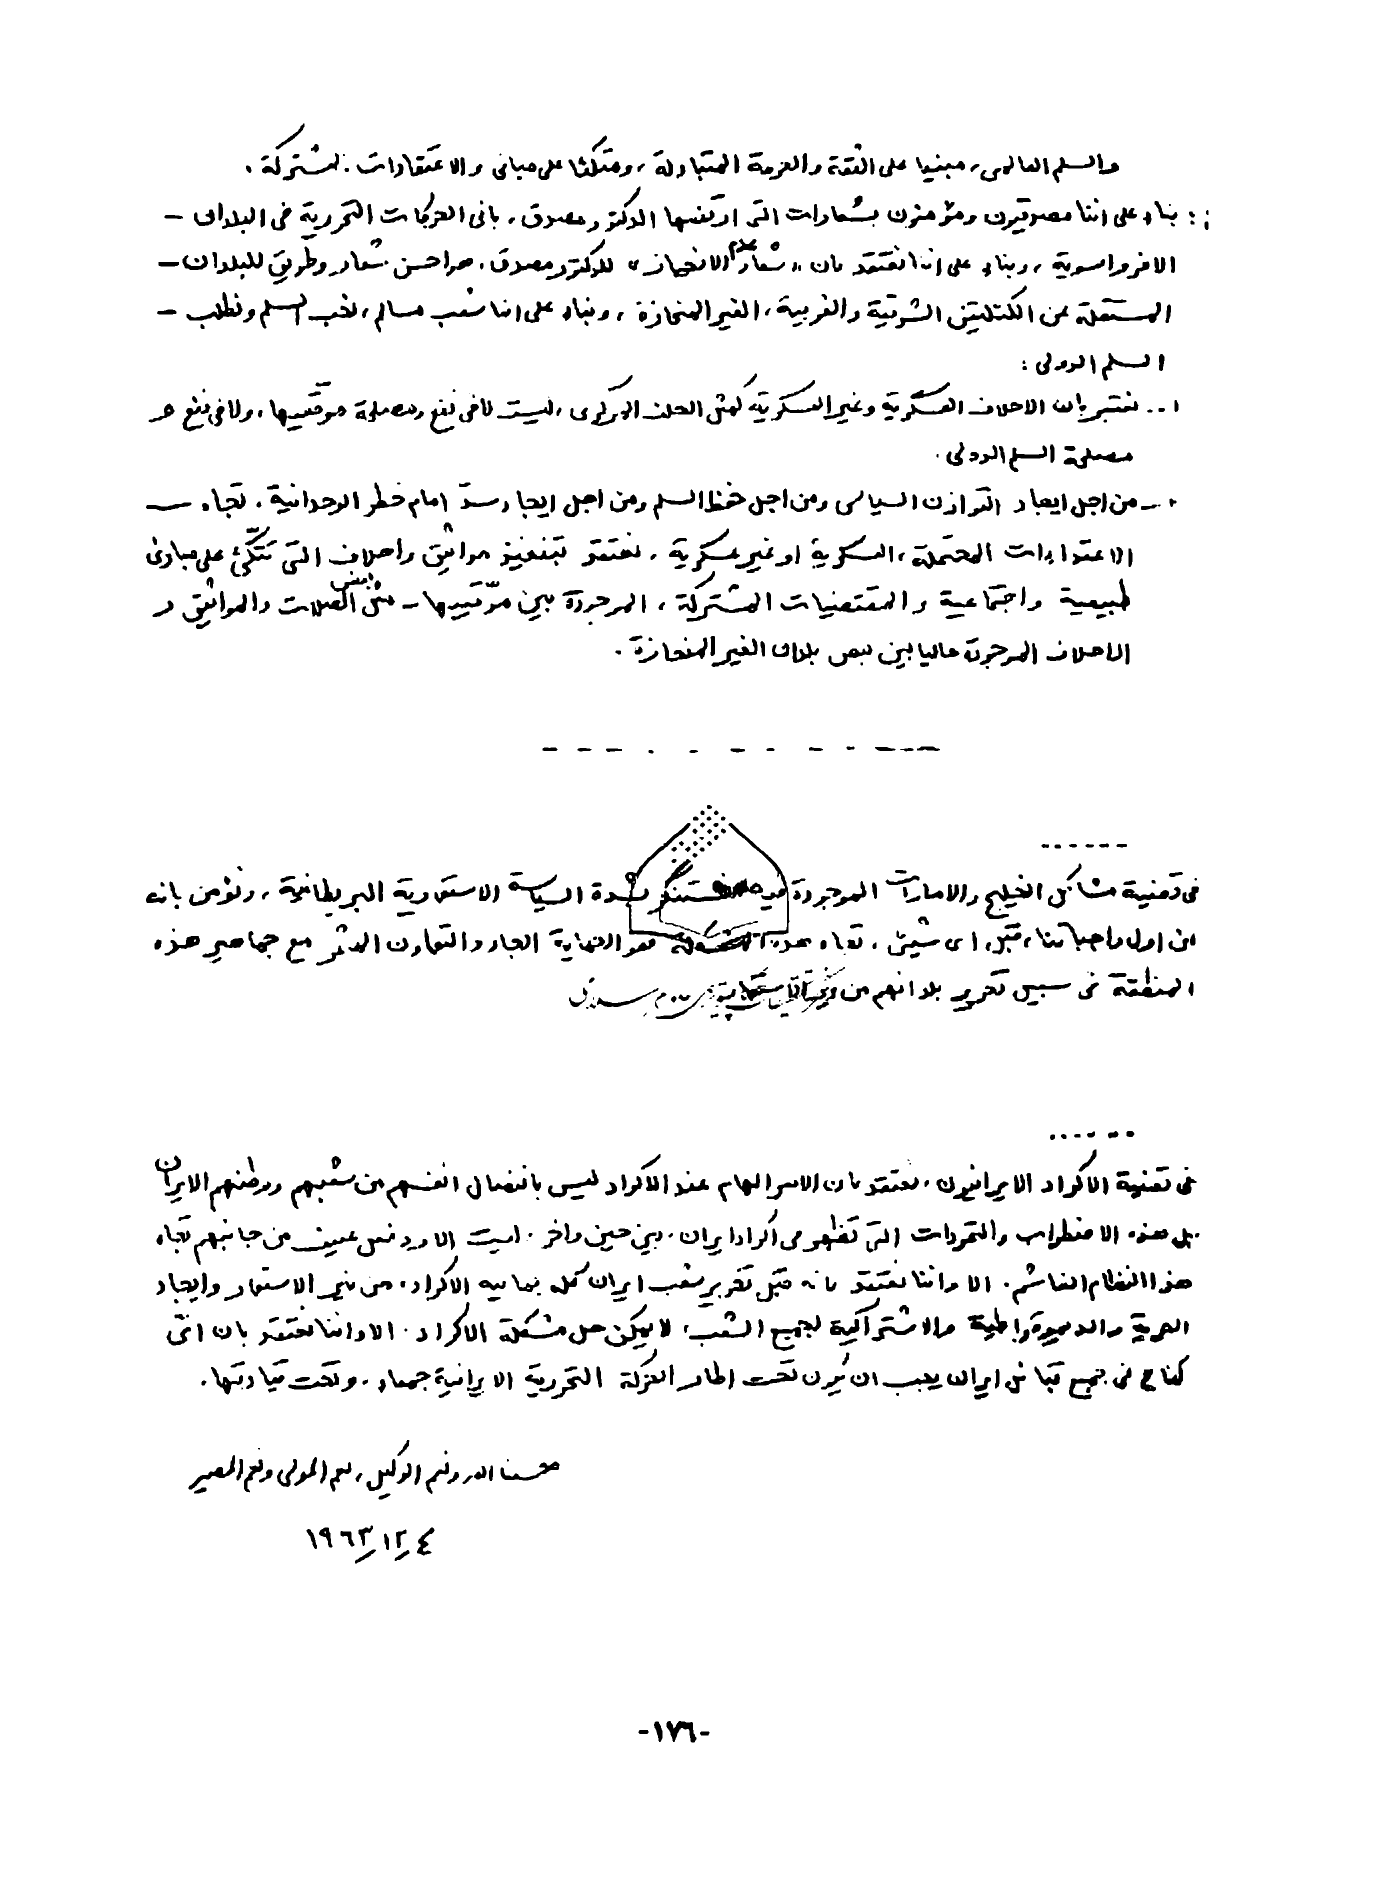 والسلم العالمى، مبنيا على الثقة والعزمة المتبادلة، ومتكئا على مبانى والاعتقادات المشتركة.
؛: بناء على اننا مصدقيون ومؤمنون بشعارات التى ارتفعها الدكتور مصدق، بانى الحركات التحررية فى البلدان –
الافرواسيوية، وبناء على اننا نعتقد بان «شعار عدم الانحياز» للدكتور مصدق، هو احسن شعار وطريق للبلدان –
المستقلة عن الكتلتين الشرقية والغربية، الغير المنحازة، وبناء على اننا شعب مسالم، نحب السلم ونطلب –
السلم الدولى:
١.. نعتبر بان الاحلاف العسكرية وغير العسكرية كمثل الحلف المركزى، ليست لا فى نفع ومصلحة موقعيها، ولا فى نفع و
مصلحة السلم الدولى.
٠ – من اجل ايجاد التوازن السياسى ومن اجل حفظ السلم ومن اجل ايجاد سدّ امام خطر الوحدانية، تجاه —
الاعتداءات المحتملة، العسكرية او غير عسكرية، نعتقد بتنفيذ مواثيق واحلاف التى تتكّئ على مبادئ
طبيعية واجتماعية والمقتضيات المشتركة، الموجودة بين موقّعيها – مثل بعض الصلات والمواثيق و
الاحلاف الموجودة حاليا بين بعض بلدان الغير المنحازة.
فى قضية مشاكل الخليج والامارات الموجودة فيه نستنكر بشدة السياسة الاستعمارية البريطانية، ونؤمن بانه
من اول واجباتنا، قبل اى شيئ، تجاه هذه المشكلة هو الحماية الجاد والتعاون المثمر مع جماهير هذه
المنطقة فى سبيل تحرير بلدانهم من
فى قضية الاكراد الايرانيون، نعتقد بان الامر الهام عند الاكراد ليس بانفصال انفسهم من شعبهم ووطنهم الايران
بل هذه الاضطراب والتمردات التى تظهر من اكراد ايران، بين حين واخر، ليست الا رد فعل عنيف من جانبهم تجاه
هذا النظام الفاشم. الا واننا نعتقد بانه قبل تحرير شعب ايران كله بما فيه الاكراد، من نير الاستعمار وايجاد
الحرية والديموقراطية والاشتراكية لجميع الشعب، لا يمكن حل مشكلة الاكراد. الا واننا نعتقد بان اىّ
كفاح فى جميع قبائل ايران يجب ان يكون تحت اطار الحركة التحررية الايرانية جمعاء، وتحت قيادتها.
حسبنا الله ونعم الوكيل، نعم المولى ونعم المصير
٤/١٢/١٩٦٣
-١٧٦-